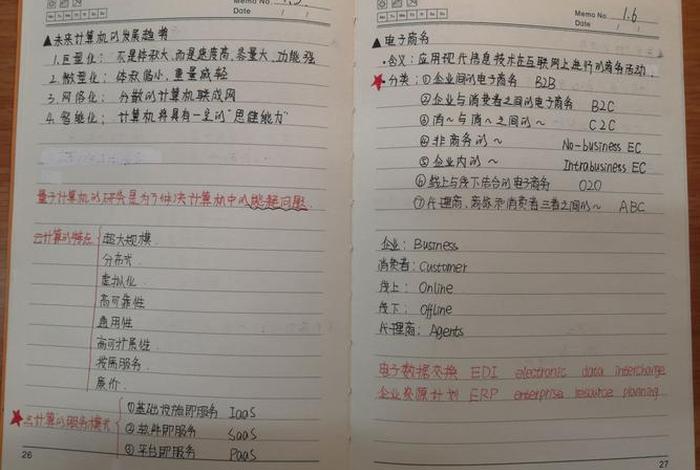 Memo No.
Date / /
▲未来计算机的发展趋势
1.巨型化：不是体积大，而是速度高、容量大、功能强
2.微型化：体积缩小，重量减轻
3.网络化：分散的计算机联成网
4.智能化：计算机将具有一定的“思维能力”
量子计算机的研究是为了解决计算机中的能耗问题.
云计算的特点
超大规模.
分布式.
虚拟化.
高可靠性
通用性
高可扩展性.
按需服务.
廉价.
★云计算的服务模式
①基础设施即服务 IaaS
②软件即服务 SaaS
③平台即服务 PaaS
26
Memo No. 1.6
Date / /
▲电子商务
·含义：应用现代信息技术在互联网上进行的商务活动.
★·分类：①企业间的电子商务 B2B
②企业与消费者之间的电子商务 B2C
③消~与消~之间的~ C2C
④非商务的~ No-business EC
⑤企业内的~ Intrabusiness EC
⑥线上与线下结合的电子商务 O2O
⑦代理商、商家和消费者三者之间的~ ABC
企业：Business
消费者：Customer
线上：Online
线下：Offline
代理商：Agents
电子数据交换 EDI electronic data interchange
企业资源计划 ERP enterprise resource planning
27